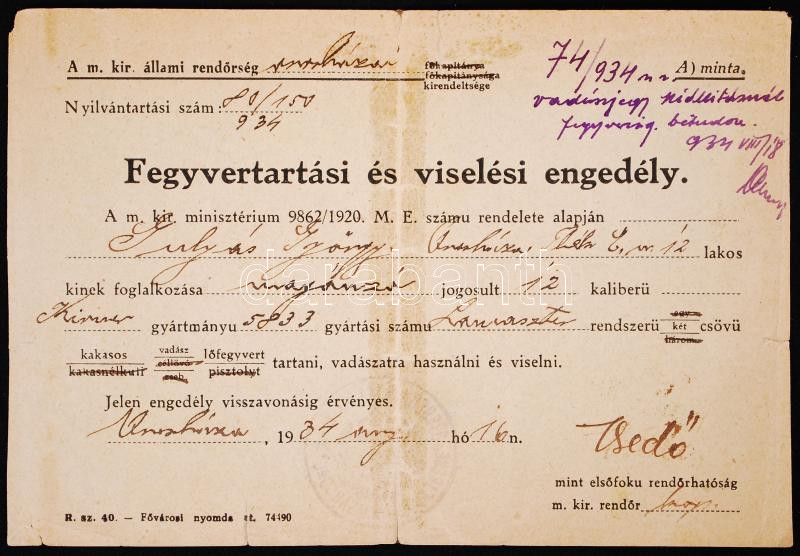 A m. kir. állami rendőrség orosházai főkapitánya
főkapitánysága
kirendeltsége
74/934 A) minta.
Nyilvántartási szám: 80/150
934
vadászjegy kiállításnál
934 VIII/18
Fegyvertartási és viselési engedély.
A m. kir. minisztérium 9862/1920. M. E. számu rendelete alapján
Gulyás György Orosháza, 12 lakos
kinek foglalkozása magánzó jogosult 12 kaliberü
Kirner gyártmányu 5833 gyártási számu Lancaster rendszerü egy két három csövü
kakasos kakasnélküli vadász céllövő zseb lőfegyvert pisztolyt tartani, vadászatra használni és viselni.
Jelen engedély visszavonásig érvényes.
Orosháza, 1934 aug hó 16 n.
mint elsőfoku rendőrhatóság
m. kir. rendőr
R. sz. 40. — Fővárosi nyomda rt. 74490
darabanth